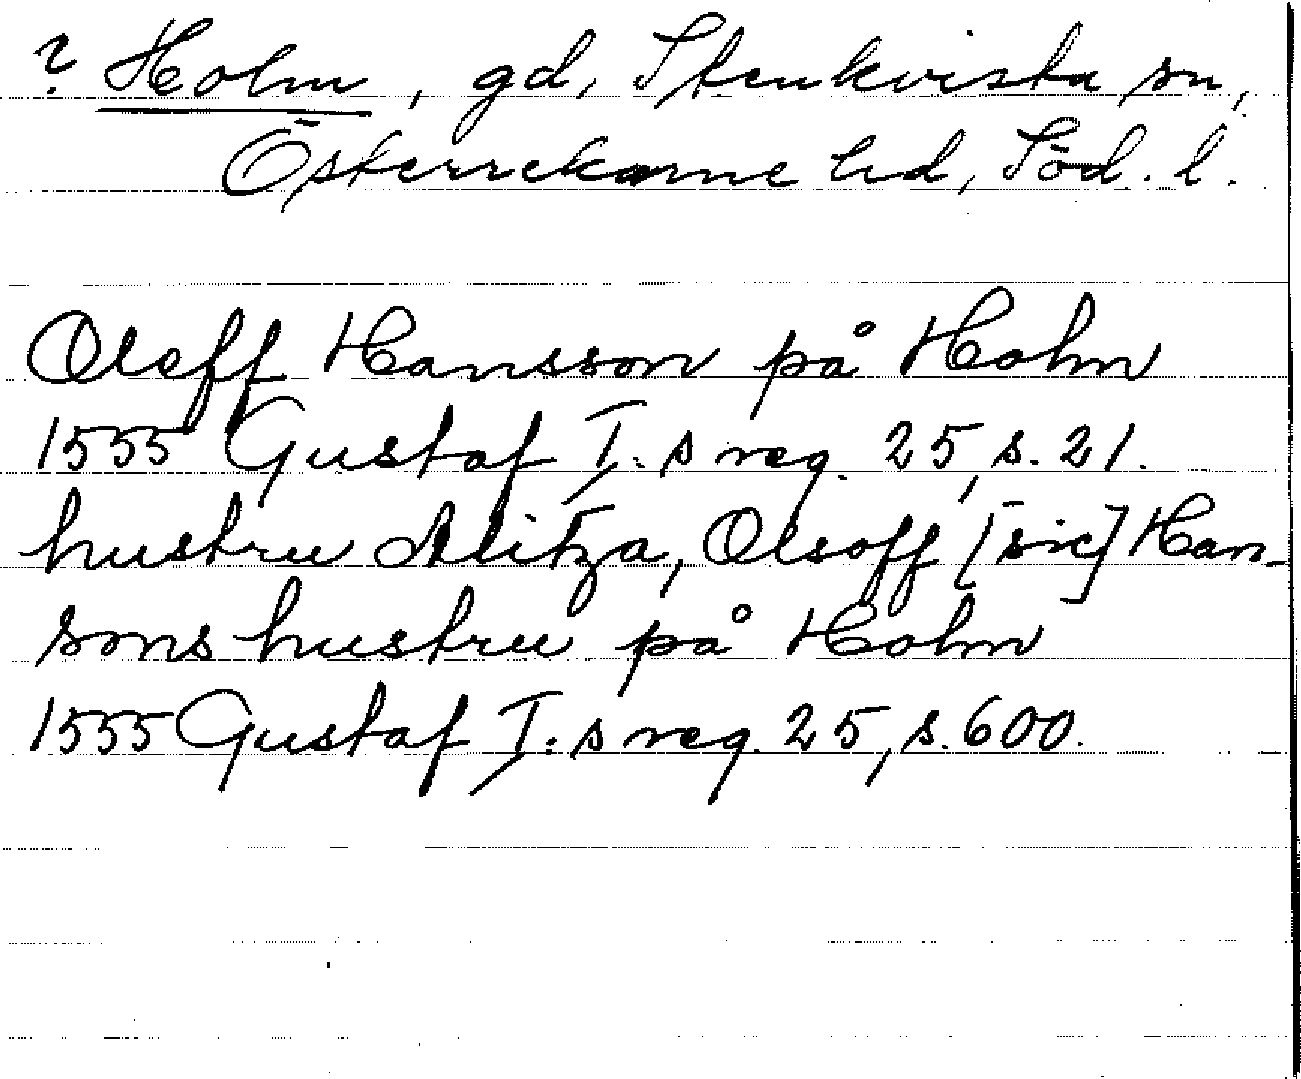 ? Holm, gd, Stenkvista sn,
Österrekarne hd, Söd. l.
Oleff Hansson på Holm
1555 Gustaf I:s reg. 25, s. 21.
hustru Alitza, Olsoff [sic] Han-
sons hustru på Holm
1555 Gustaf I:s reg. 25, s. 600.